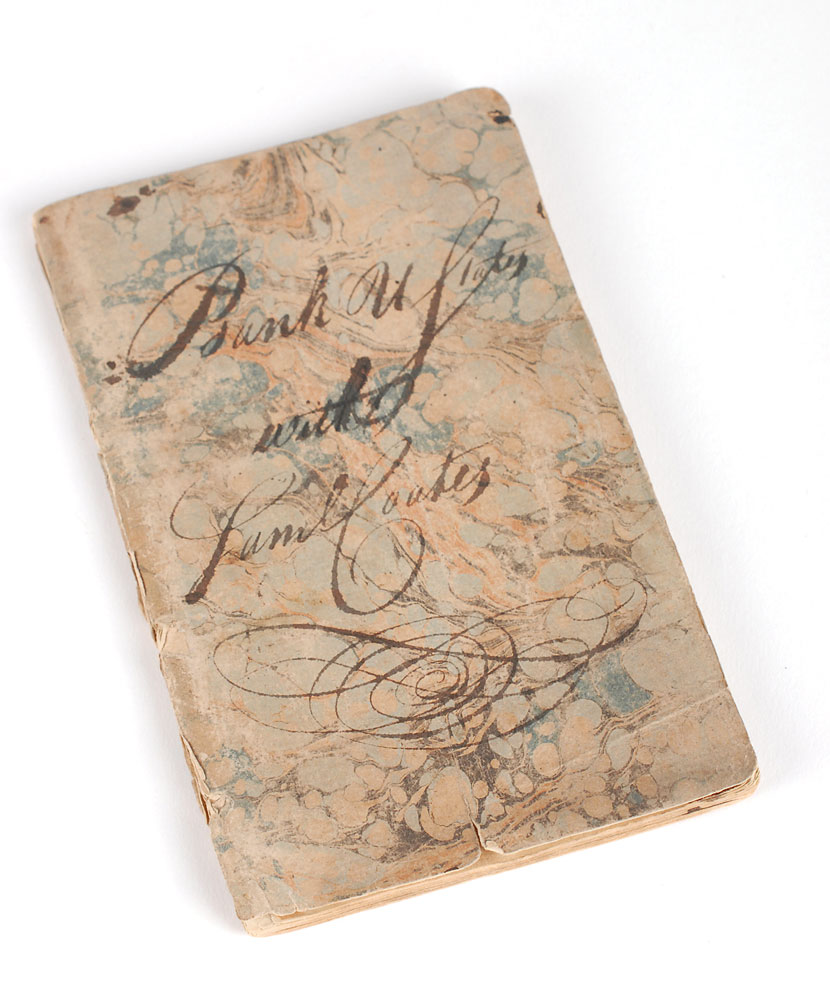 Bank U States
with
Saml Coates